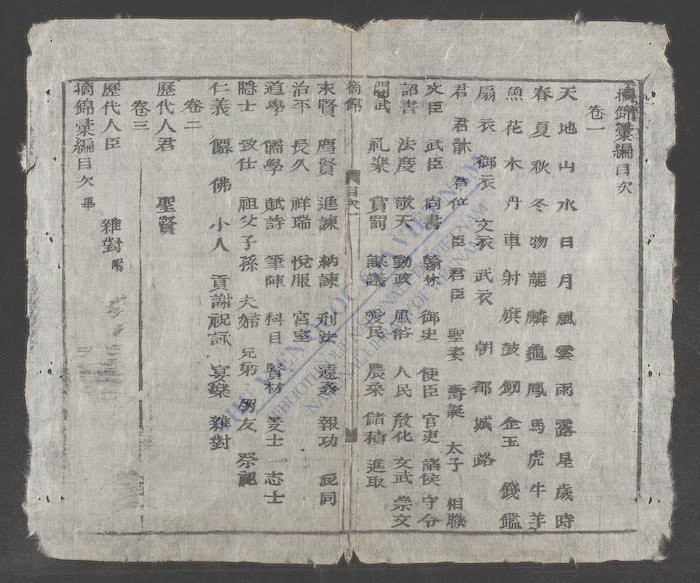 摘錦彙編目次
卷一
天 地 山 水 日 月 風 雲 雨 露 星 歲 時
春 夏 秋 冬 物 龍 麟 龜 鳳 馬 虎 牛 羊
魚 花 木 丹 車 射 旗 鼓 劍 金 玉 錢 鑑
扇 衣 御衣 文衣 武衣 朝 都 城 路
君 君 君位 臣 君臣 聖姿 壽誕 太子 相職
文臣 武臣 尚書 翰林 御史 使臣 官吏 諸侯 守令
詔書 法度 敬天 勤政 風俗 人民 教化 文武 崇文
閱武 礼樂 賞罰 謀議 愛民 農桑 儲積 進取
摘錦 目次一
求賢 薦賢 進諫 納諫 刑法 遠姦 報功 混同
治平 長久 祥瑞 悅服 宮室
道學 儒學 賦詩 筆陣 科目 賢材 志士
隱士 致仕 祖父子孫 夫婦 兄弟 朋友 祭祀
仁義 僊 佛 小人 貢謝祝詠 宴樂 雜對
卷二
歷代人君 聖賢
卷三
歷代人臣 雜對附
摘錦彙編目次畢
THƯ VIỆN QUỐC GIA VIỆT NAM
BIBLIOTHÈQUE NATIONALE DU VIETNAM
NATIONAL LIBRARY OF VIETNAM